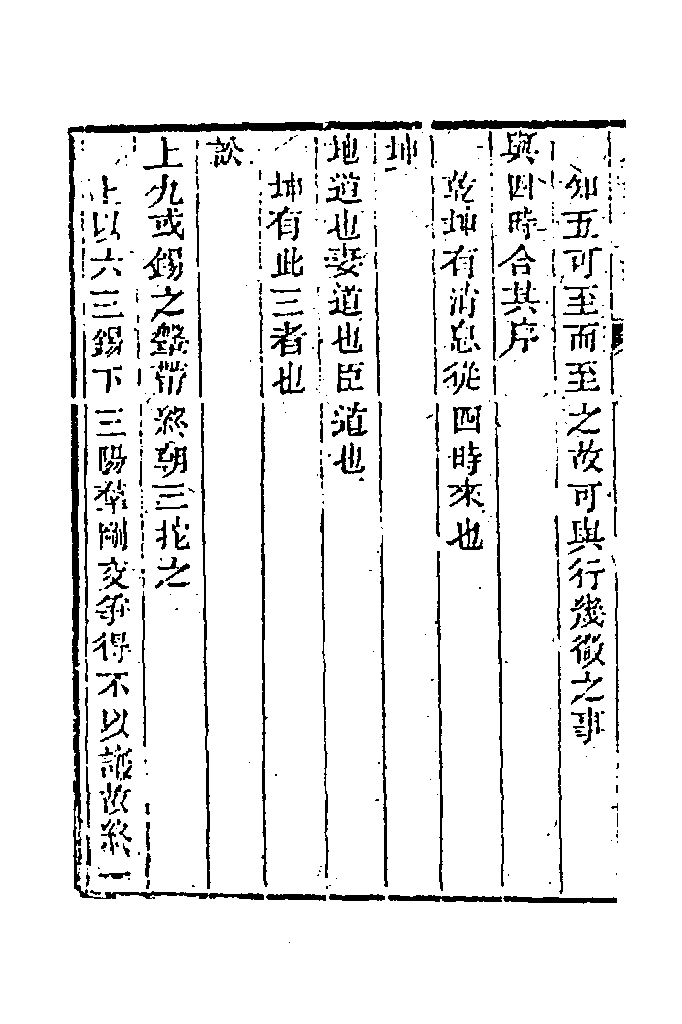 知五可至而至之故可與行幾微之事
與四時合其序
乾坤有消息從四時來也
坤
地道也妻道也臣道也
坤有此三者也
訟
上九或錫之鞶帶終朝三拕之
上以六三錫下三陽羣剛交爭得不以讓故終一